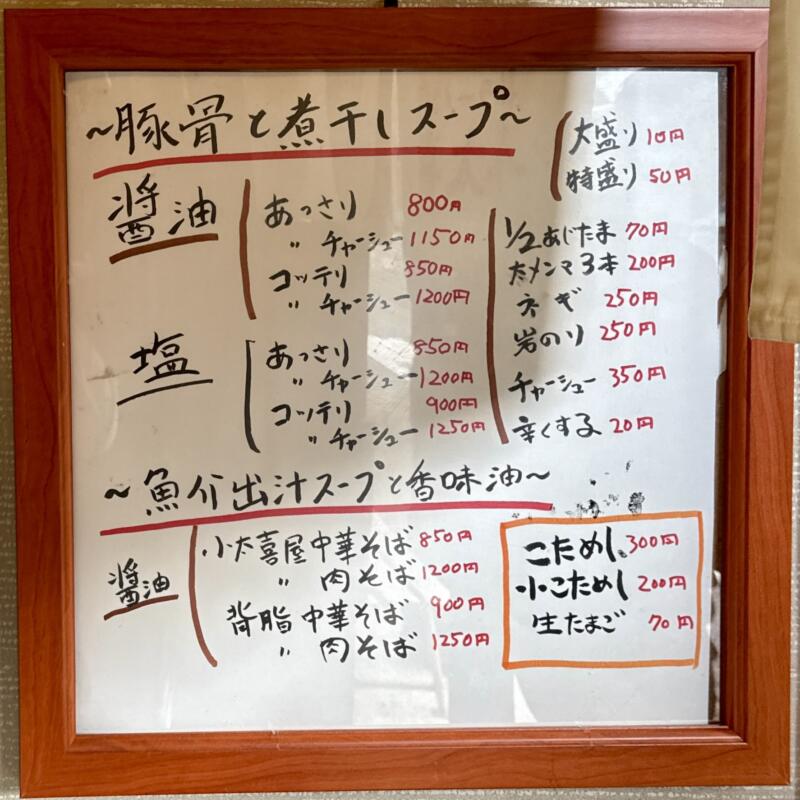 ～豚骨と煮干しスープ～
醤油
あっさり 800円
〃 チャーシュー 1150円
コッテリ 850円
〃 チャーシュー 1200円
塩
あっさり 850円
〃 チャーシュー 1200円
コッテリ 900円
〃 チャーシュー 1250円
大盛り 10円
特盛り 50円
1/2あじたま 70円
太メンマ3本 200円
ネギ 250円
岩のり 250円
チャーシュー 350円
辛くする 20円
～魚介出汁スープと香味油～
醤油
小太喜屋中華そば 850円
〃 肉そば 1200円
背脂中華そば 900円
〃 肉そば 1250円
こためし 300円
小こためし 200円
生たまご 70円